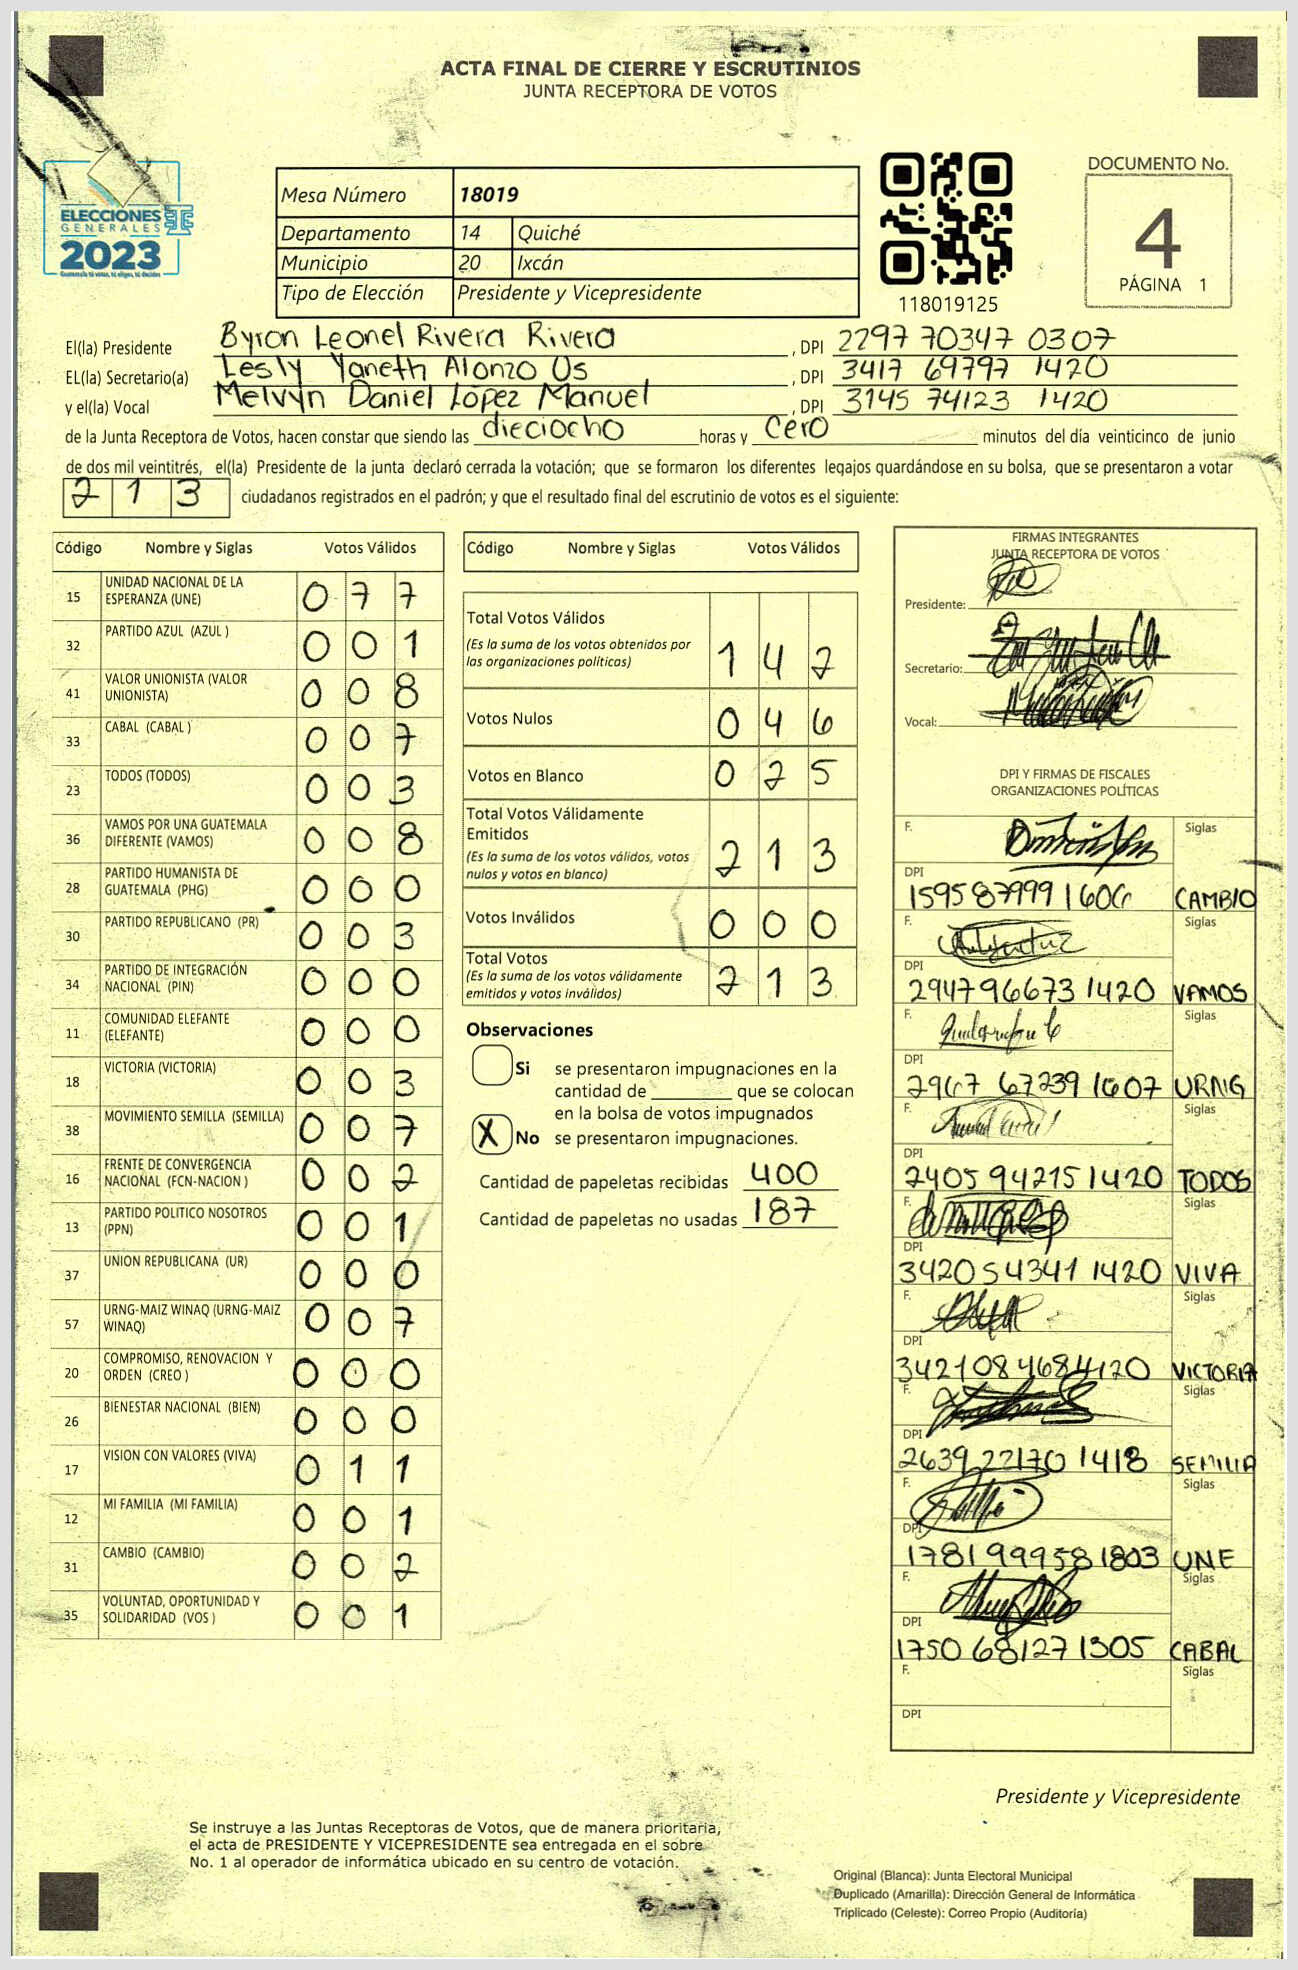 ACTA FINAL DE CIERRE Y ESCRUTINIOS
JUNTA RECEPTORA DE VOTOS
ELECCIONES
GENERALES
2023
TSE
Mesa Número 18019
Departamento 14 Quiché
Municipio 20 Ixcán
Tipo de Elección Presidente y Vicepresidente
118019125
DOCUMENTO No.
4
PÁGINA 1
El(la) Presidente Byron Leonel Rivera Rivera , DPI 2297 70347 0307
EL(la) Secretario(a) Lesly Yaneth Alonzo Us , DPI 3417 69797 1420
y el(la) Vocal Melvyn Daniel López Manuel , DPI 3145 74123 1420
de la Junta Receptora de Votos, hacen constar que siendo las dieciocho horas y cero minutos del día veinticinco de junio
de dos mil veintitrés, el(la) Presidente de la junta declaró cerrada la votación; que se formaron los diferentes legajos guardándose en su bolsa, que se presentaron a votar
213 ciudadanos registrados en el padrón; y que el resultado final del escrutinio de votos es el siguiente:
Código Nombre y Siglas Votos Válidos
15 UNIDAD NACIONAL DE LA ESPERANZA (UNE) 0 7 7
32 PARTIDO AZUL (AZUL ) 0 0 1
41 VALOR UNIONISTA (VALOR UNIONISTA) 0 0 8
33 CABAL (CABAL ) 0 0 7
23 TODOS (TODOS) 0 0 3
36 VAMOS POR UNA GUATEMALA DIFERENTE (VAMOS) 0 0 8
28 PARTIDO HUMANISTA DE GUATEMALA (PHG) 0 0 0
30 PARTIDO REPUBLICANO (PR) 0 0 3
34 PARTIDO DE INTEGRACIÓN NACIONAL (PIN) 0 0 0
11 COMUNIDAD ELEFANTE (ELEFANTE) 0 0 0
18 VICTORIA (VICTORIA) 0 0 3
38 MOVIMIENTO SEMILLA (SEMILLA) 0 0 7
16 FRENTE DE CONVERGENCIA NACIONAL (FCN-NACION ) 0 0 2
13 PARTIDO POLITICO NOSOTROS (PPN) 0 0 1
37 UNION REPUBLICANA (UR) 0 0 0
57 URNG-MAIZ WINAQ (URNG-MAIZ WINAQ) 0 0 7
20 COMPROMISO, RENOVACION Y ORDEN (CREO ) 0 0 0
26 BIENESTAR NACIONAL (BIEN) 0 0 0
17 VISION CON VALORES (VIVA) 0 1 1
12 MI FAMILIA (MI FAMILIA) 0 0 1
31 CAMBIO (CAMBIO) 0 0 2
35 VOLUNTAD, OPORTUNIDAD Y SOLIDARIDAD (VOS ) 0 0 1
Código Nombre y Siglas Votos Válidos
Total Votos Válidos
(Es la suma de los votos obtenidos por las organizaciones políticas) 1 4 2
Votos Nulos 0 4 6
Votos en Blanco 0 2 5
Total Votos Válidamente Emitidos
(Es la suma de los votos válidos, votos nulos y votos en blanco) 2 1 3
Votos Inválidos 0 0 0
Total Votos
(Es la suma de los votos válidamente emitidos y votos inválidos) 2 1 3
Observaciones
Si se presentaron impugnaciones en la
cantidad de ________ que se colocan
en la bolsa de votos impugnados
X No se presentaron impugnaciones.
Cantidad de papeletas recibidas 400
Cantidad de papeletas no usadas 187
FIRMAS INTEGRANTES
JUNTA RECEPTORA DE VOTOS
Presidente:
Secretario:
Vocal:
DPI Y FIRMAS DE FISCALES
ORGANIZACIONES POLÍTICAS
F. Siglas
DPI
CAMBIO
F. Siglas
DPI
2947966731420 VAMOS
F. Siglas
DPI
2967 67239 1607 URNG
F. Siglas
DPI
2405 94215 1420 TODOS
F. Siglas
DPI
3420543411420 VIVA
F. Siglas
DPI
VICTORIA
F. Siglas
DPI
2639 22170 1418 SEMILLA
F. Siglas
DPI
1781999581803 UNE
F. Siglas
DPI
1750 68127 1305 CABAL
F. Siglas
DPI
Presidente y Vicepresidente
Se instruye a las Juntas Receptoras de Votos, que de manera prioritaria,
el acta de PRESIDENTE Y VICEPRESIDENTE sea entregada en el sobre
No. 1 al operador de informática ubicado en su centro de votación.
Original (Blanca): Junta Electoral Municipal
Duplicado (Amarilla): Dirección General de Informática
Triplicado (Celeste): Correo Propio (Auditoría)